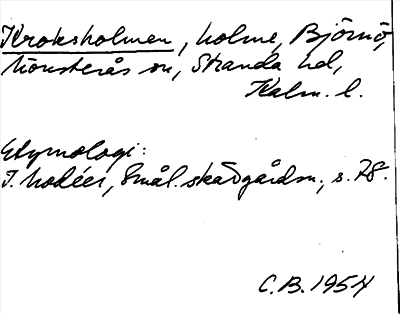 Kroksholmen, holme, Björnö,
Mönsterås sn, Stranda hd,
Kalm. l.
Etymologi:
I. Modéer, Smål. skärgårdsn., s. 78.
C.B. 1954